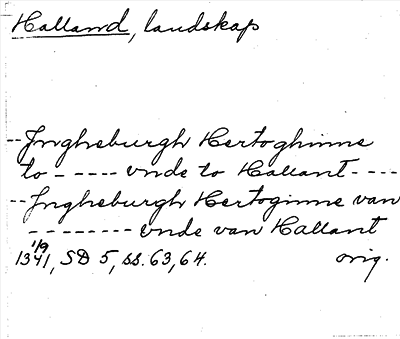 Halland, landskap
--Jngheburgh Hertoghinne
to ----- vnde to Hallant----
--Jngheburgh Hertoginne van
-------- vnde van Hallant
1/9
1341, SD 5, ss. 63, 64. orig.